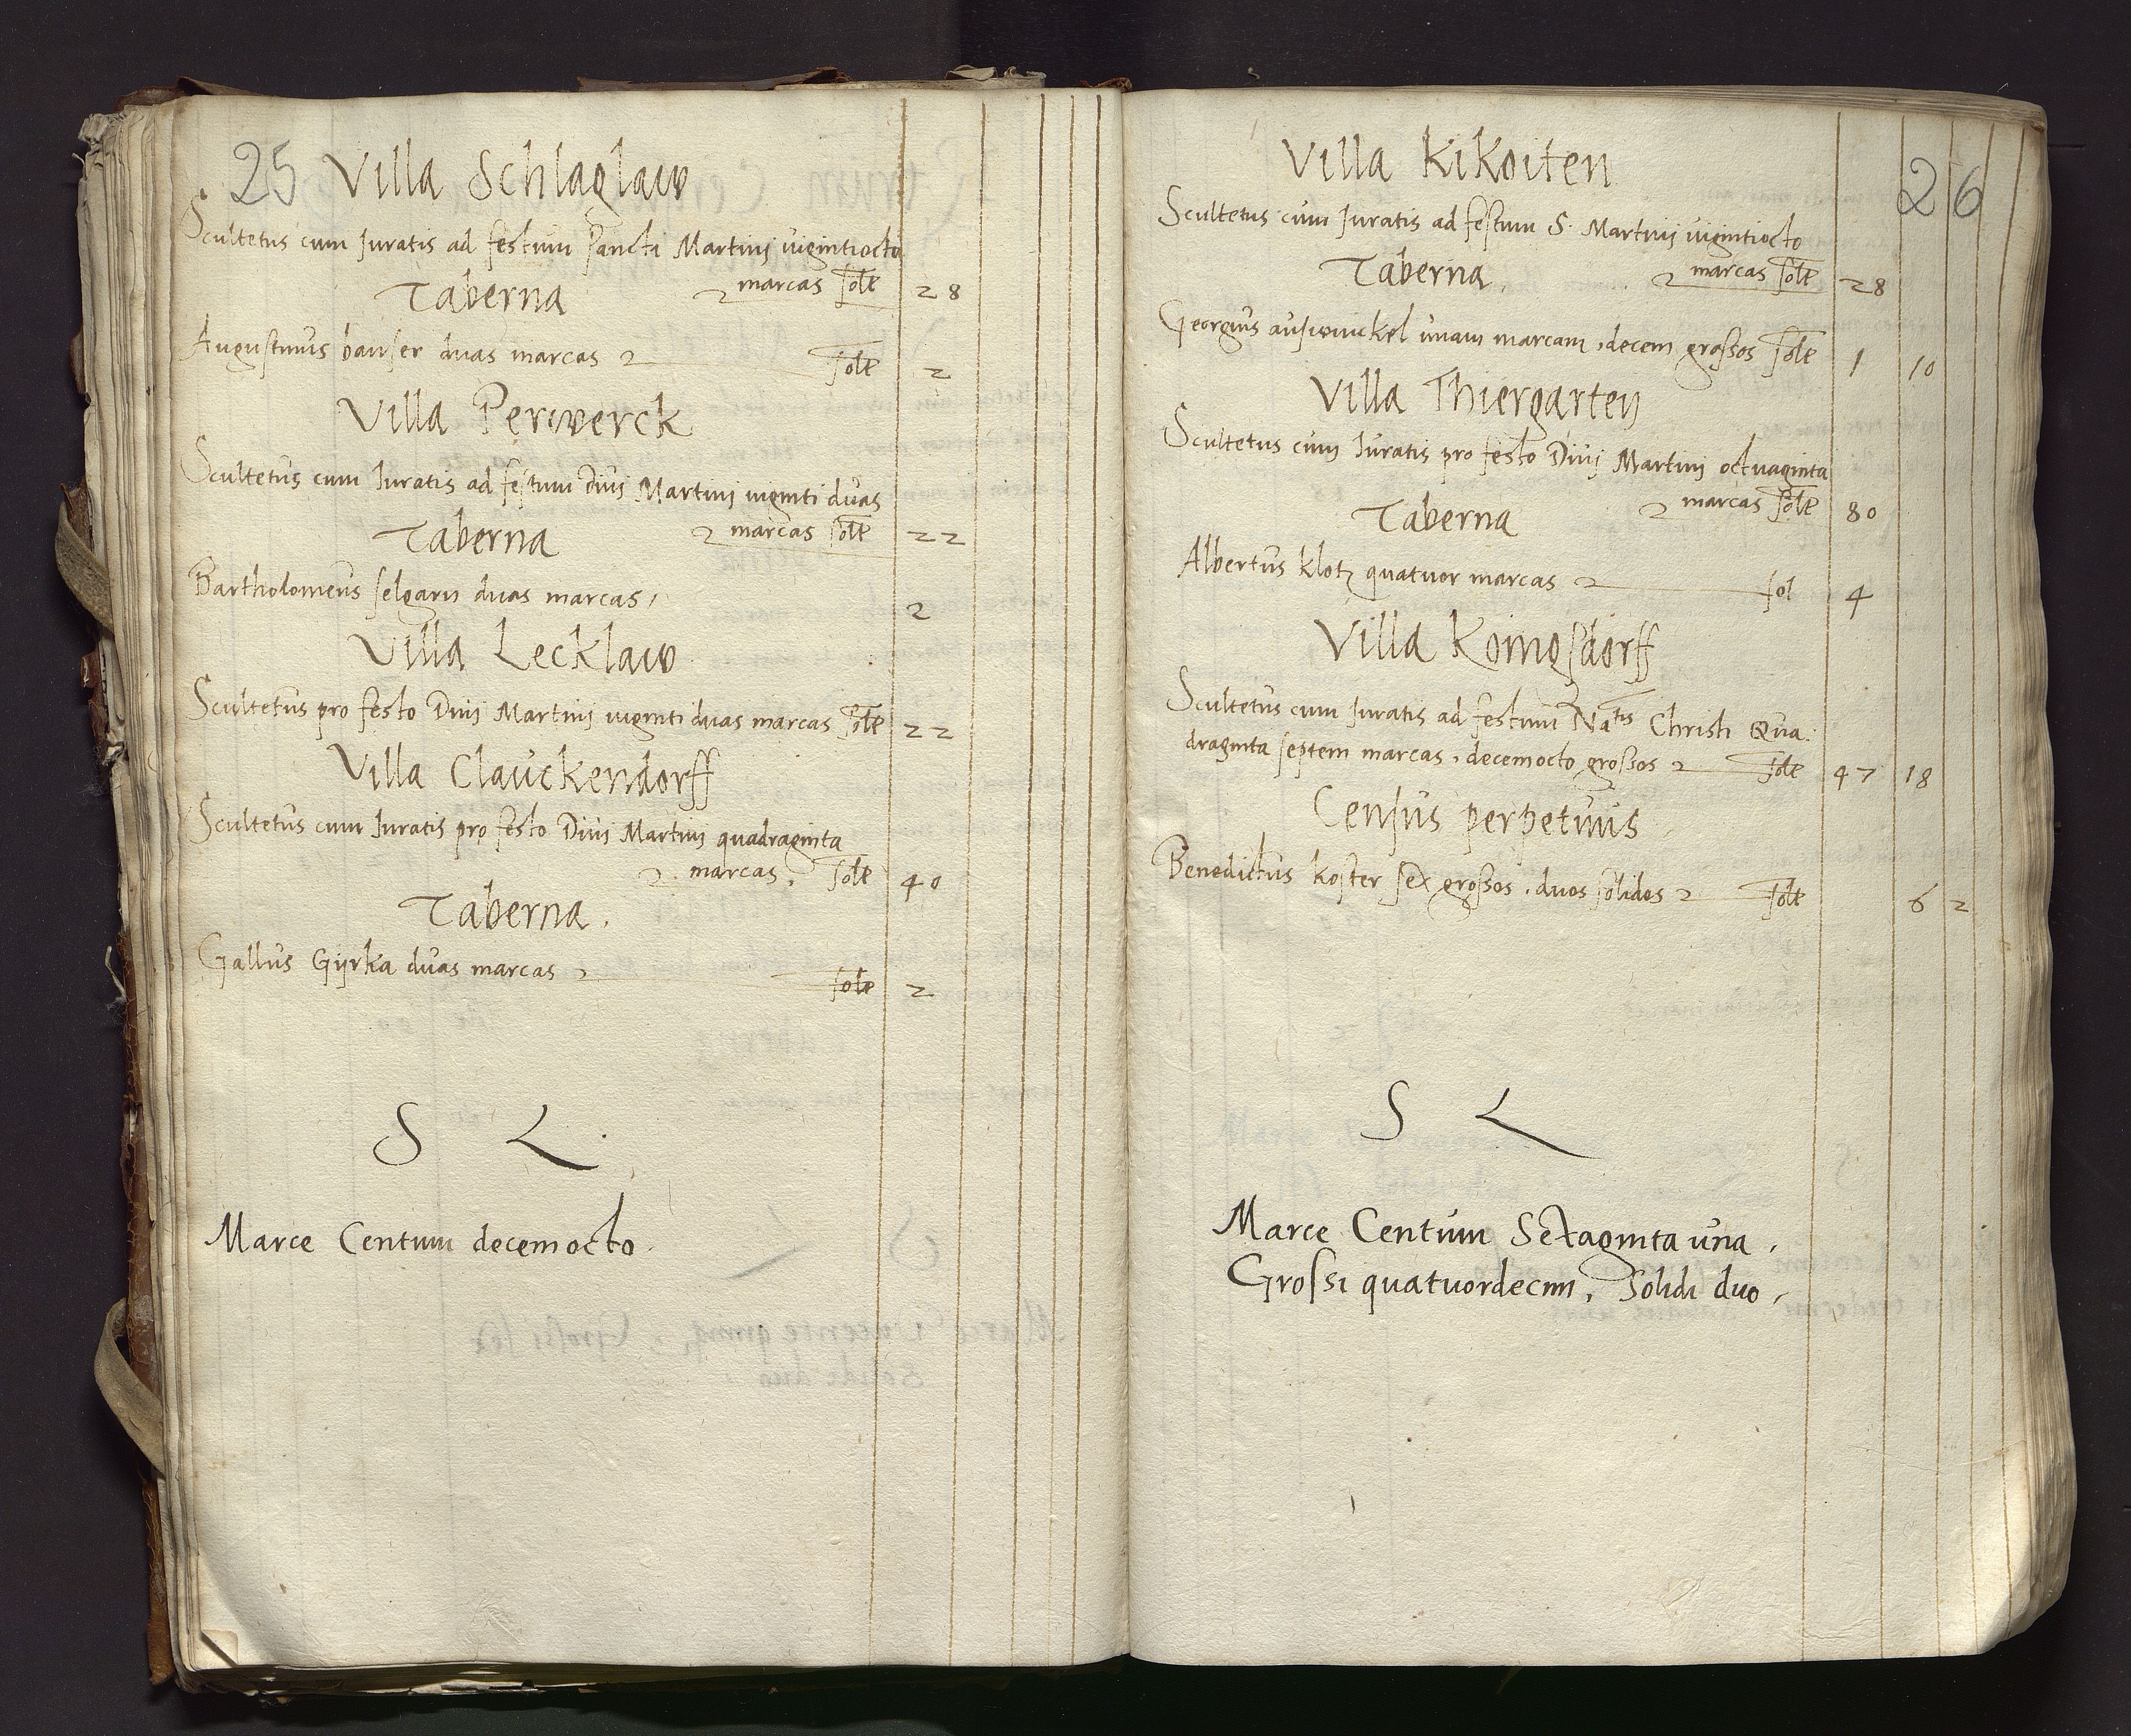 25 Villa Schlaglaw
Scultetus cum Iuratis ad festum Sancti Martinj vigintiocto
marcas solt 28
Taberna
Augustinus banser duas marcas solt 2
Villa Perwerck
Scultetus cum Iuratis ad festum Diui Martinj viginti duas
marcas solt 22
Taberna
Bartholomeus selgarn duas marcas, 2
Villa Lecklaw
Scultetus pro festo Diui Martinj viginti duas marcas solt 22
Villa Clauckendorff
Scultetus cum Iuratis pro festo Diui Martinj quadraginta
marcas. solt 40
Taberna.
Gallus Gyrka duas marcas solt 2
S L.
Marce Centum decemocto.
26
Villa Kikoiten
Scultetus cum Iuratis ad festum S. Martinj vigintiocto
marcas solt 28
Taberna.
Georgius auswinckel unam marcam, decem grossos solt 1 10
Villa Thiergarten
Scultetus cum Iuratis pro festo Diui Martinj octuaginta
marcas solt 80
Taberna
Albertus klotz quatuor marcas sol 4
Villa Konigsdorff
Scultetus cum Iuratis ad festum Natis Christi Qua:
draginta septem marcas, decemocto grossos solt 47 18
Census perpetuus
Benedictus koster sex grossos, duos solidos solt 6 2
S L
Marce Centum Sexaginta una,
Grossi quatuordecim, Solidi duo,